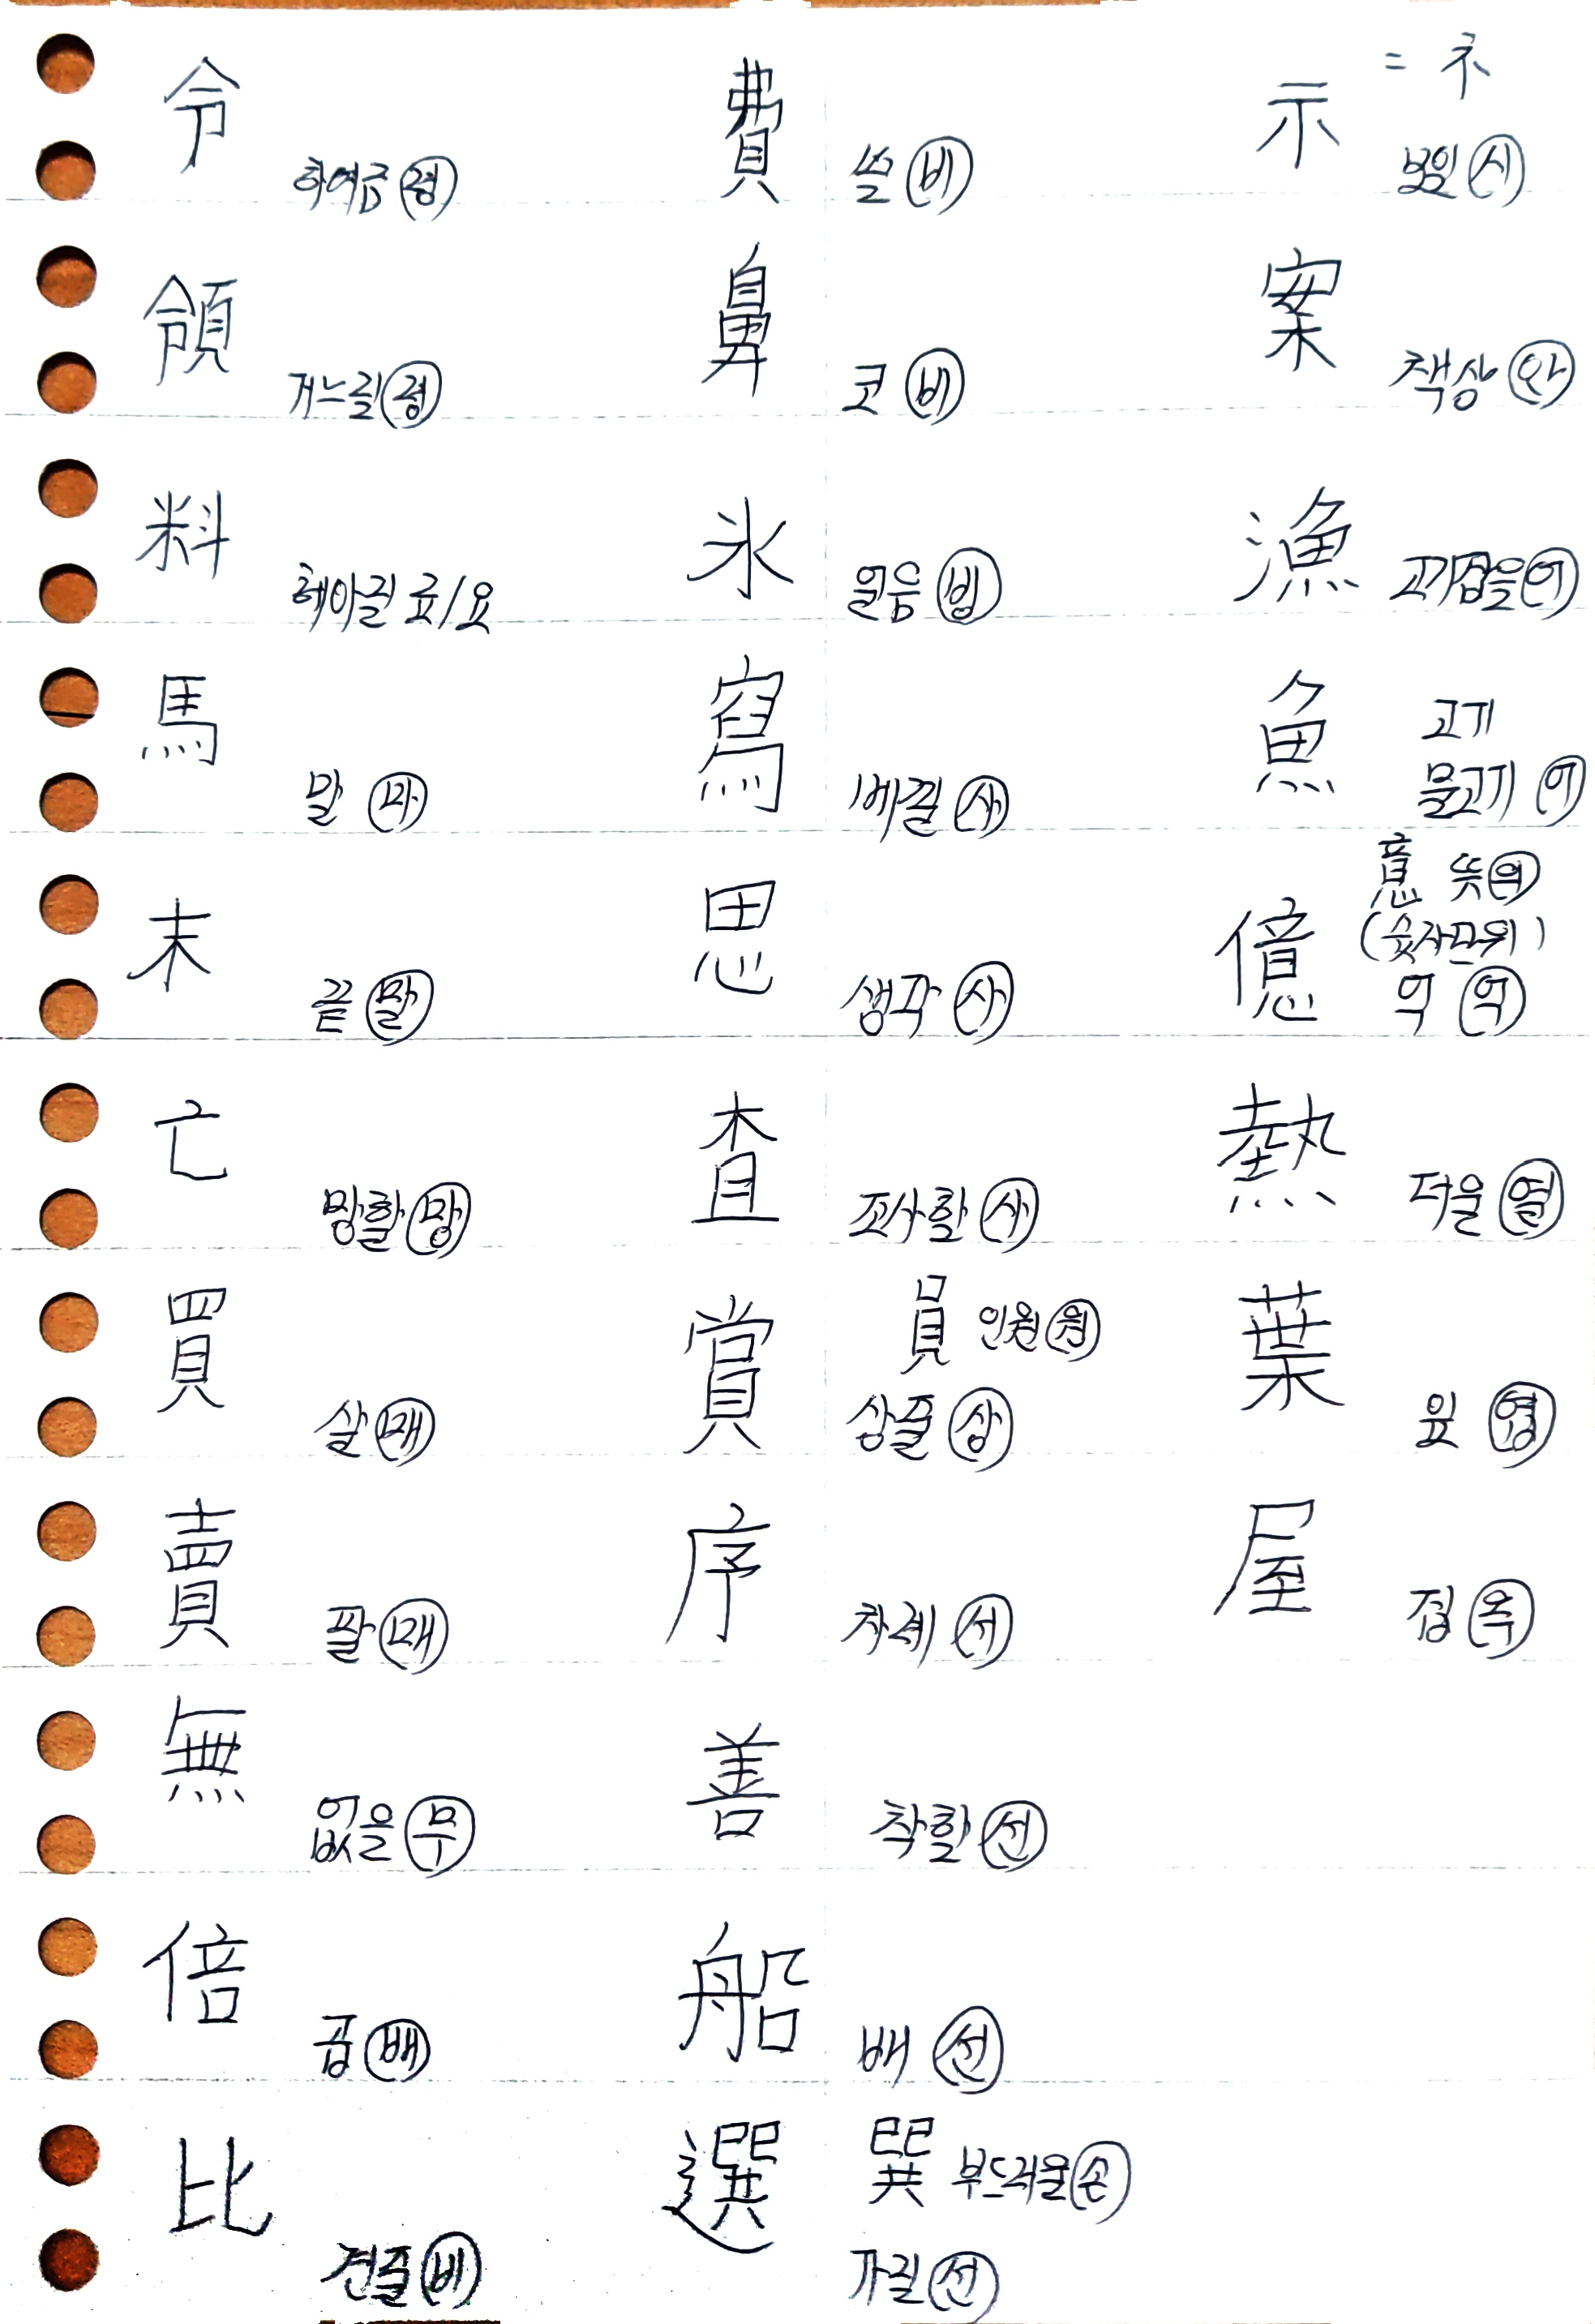 令 하여금 령
費 쓸 비
示 = 礻 보일 시
領 거느릴 령
鼻 코 비
案 책상 안
料 헤아릴 료/요
氷 얼음 빙
漁 고기잡을 어
馬 말 마
寫 베낄 사
魚 고기 물고기 어
末 끝 말
思 생각 사
意 뜻 의
億 (숫자단위) 억 억
亡 망할 망
査 조사할 사
熱 더울 열
買 살 매
員 인원 원
賞 상줄 상
葉 잎 엽
賣 팔 매
序 차례 서
屋 집 옥
無 없을 무
善 착할 선
倍 곱 배
船 배 선
比 견줄 비
巽 부드러울 손
選 가릴 선